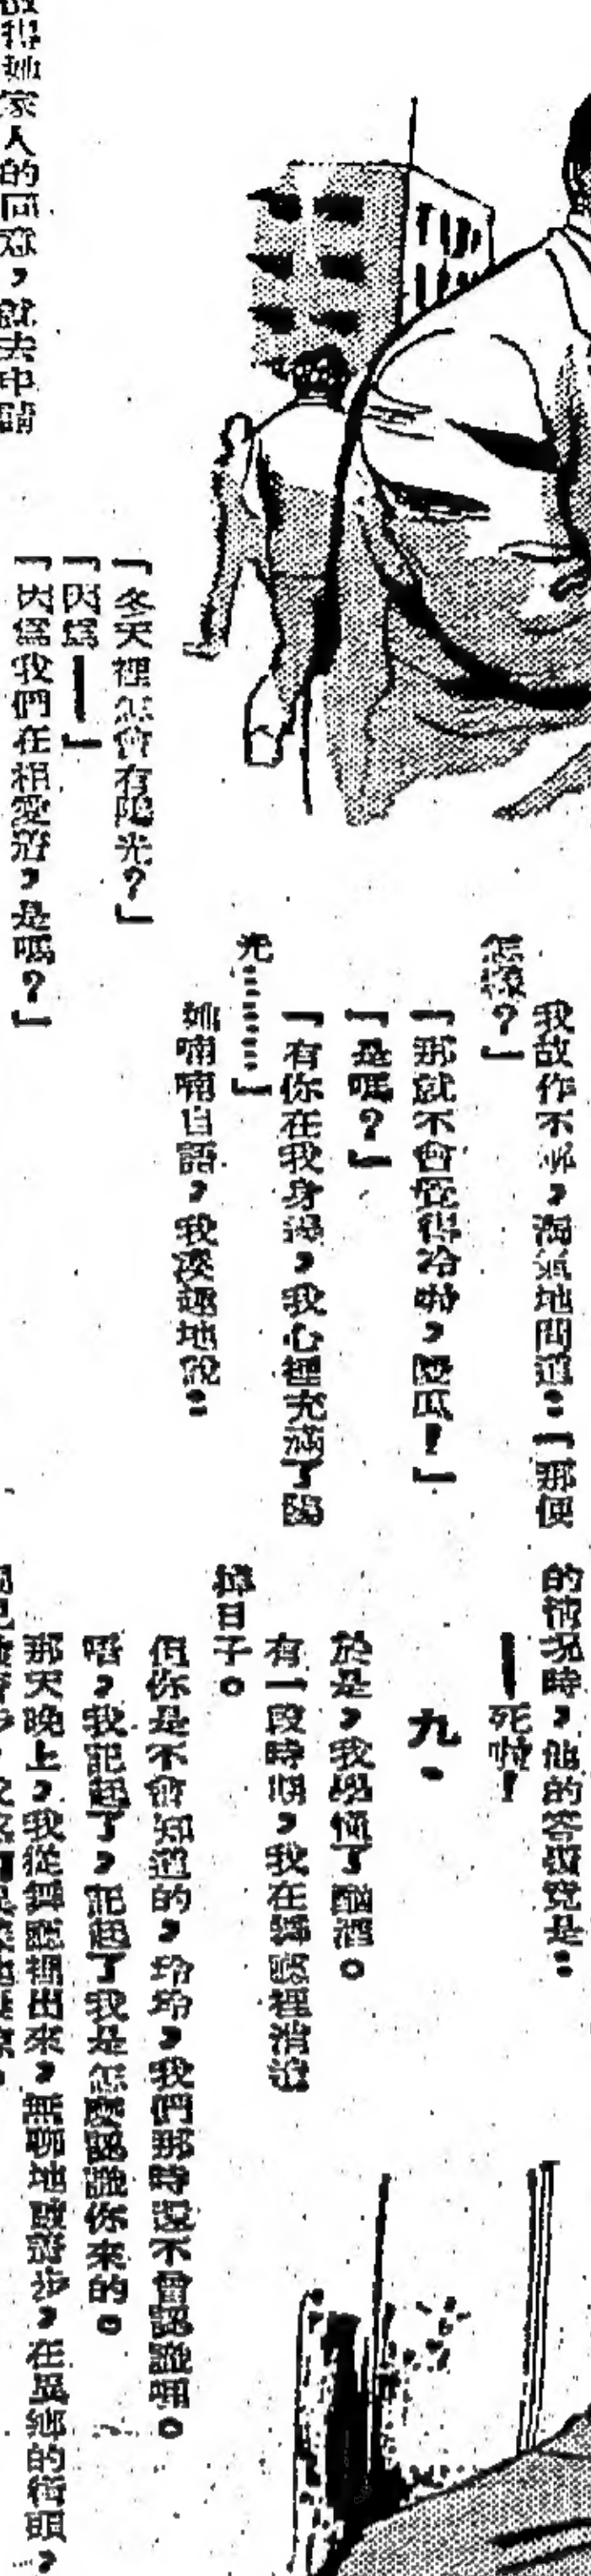 我故作不解，淘氣地問道：「那便
怎樣？」
「那就不會覺得冷啦，傻瓜！」
「是嗎？」
「有你在我身邊，我心裡充滿了陽
光………」
她喃喃自語，我湊趣地說：
「冬天裡怎會有陽光？」
「因爲——」
「因爲我們在相愛着，是嗎？」
得她家人的同意，就去申請
的情況時，他的答覆竟是：
——死啦！
九．
於是，我學懂了酗酒。
有一段時期，我在舞廳裡消磨
掉日子。
但你是不會知道的，玲玲，我們那時還不曾認識哩。
唔，我記起了，記起了我是怎麼認識你來的。
那天晚上，我從舞廳裡出來，無聊地踱着步，在異鄉的街頭，